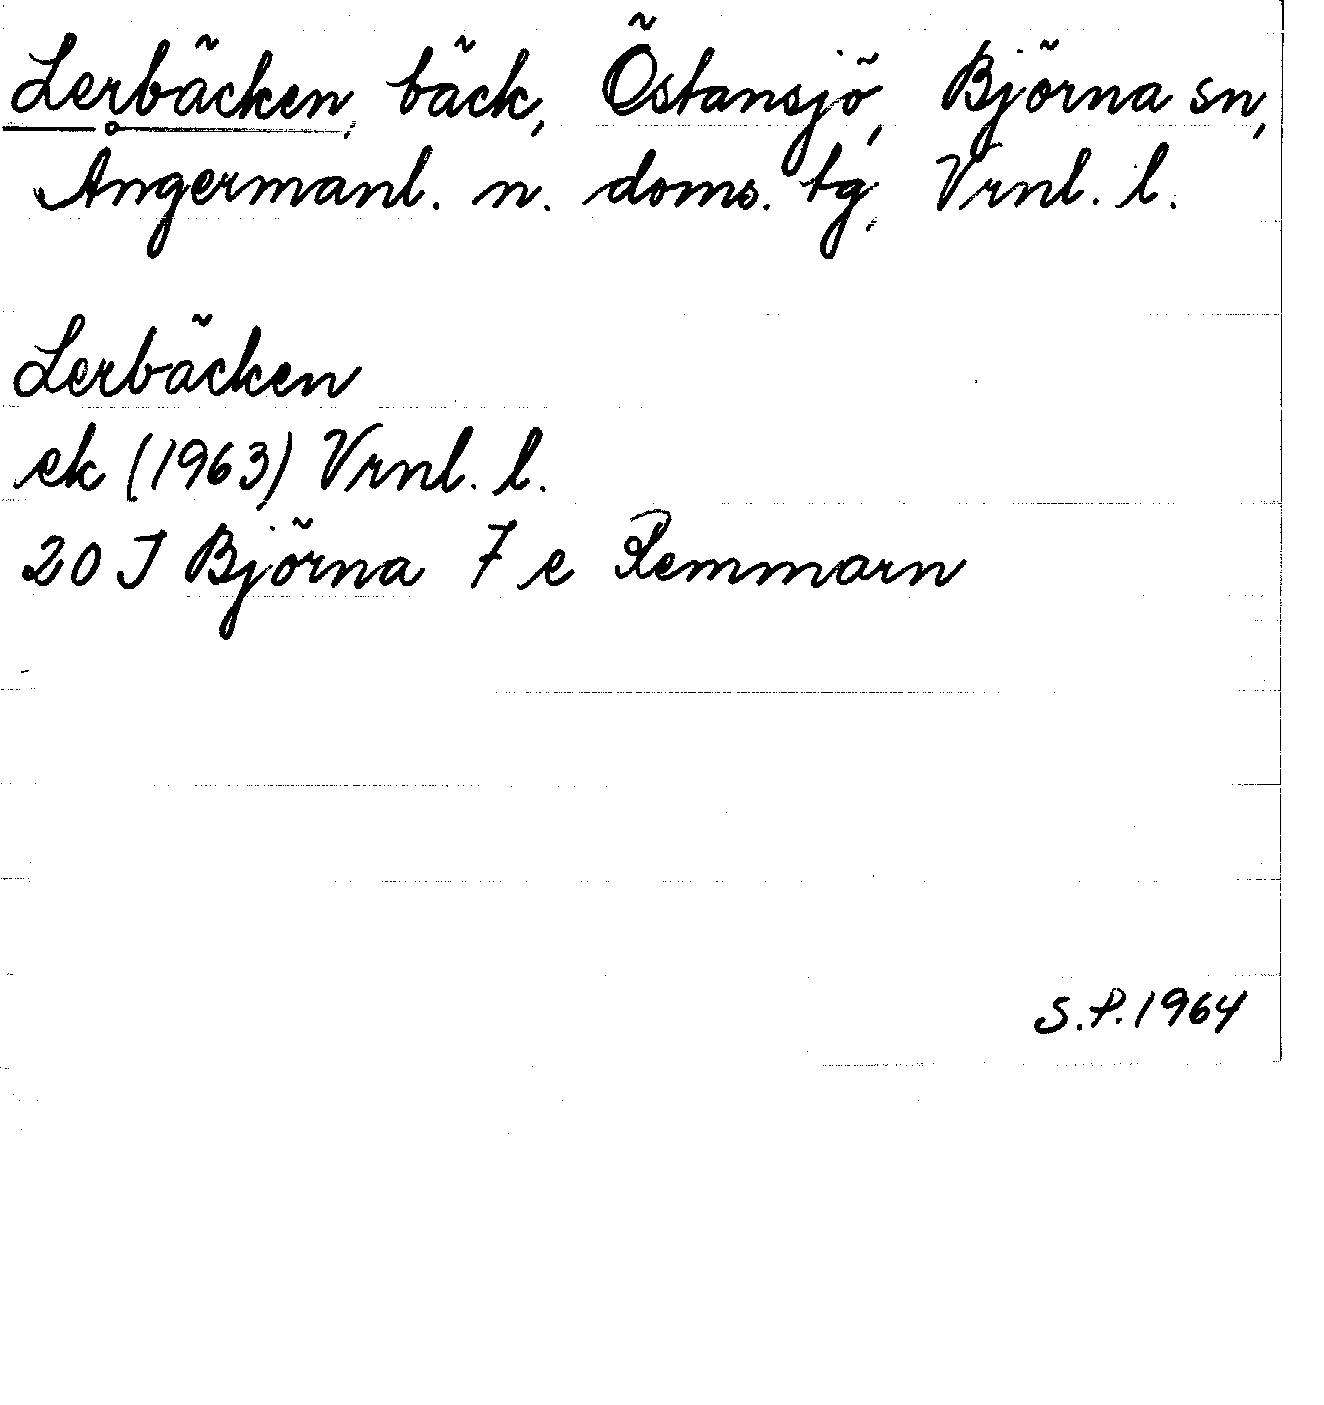 Lerbäcken, bäck, Östansjö, Björna sn,
Ångermanl. n. doms. tg, Vrnl. l.
Lerbäcken
ek (1963) Vrnl. l.
20 J Björna 7 e Remmarn
S.P. 1964